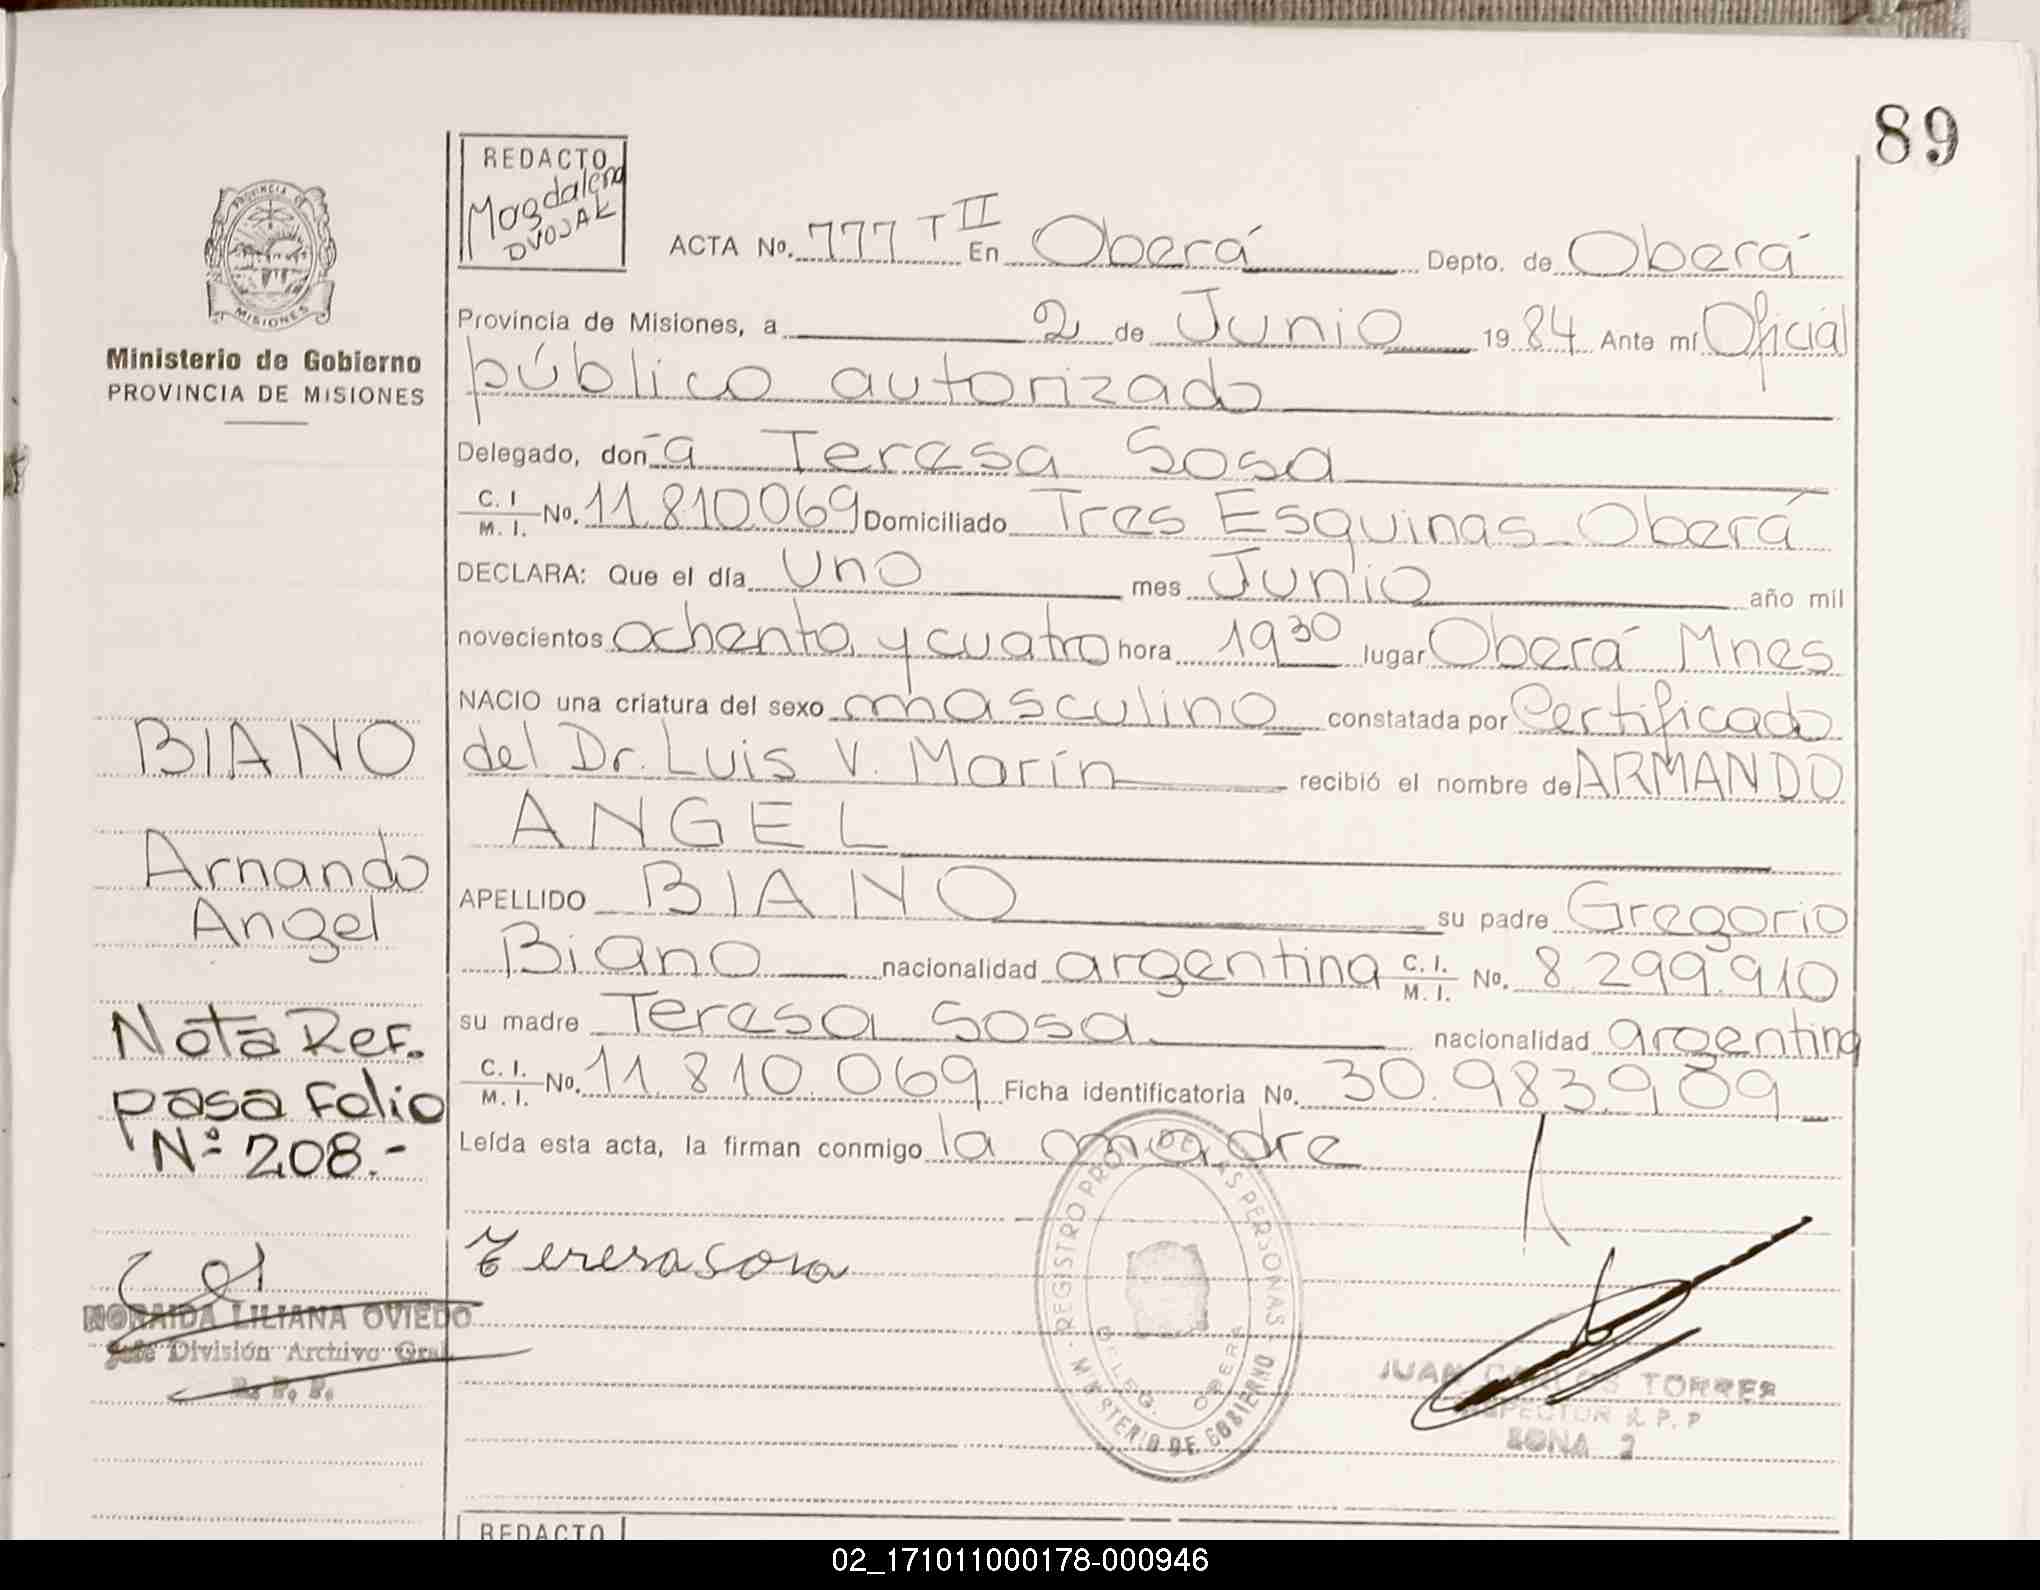 89
REDACTO
Magdalena
DVOJAK
PROVINCIA DE
MISIONES
Ministerio de Gobierno
PROVINCIA DE MISIONES
ACTA No. 777 T II En Oberá Depto. de Oberá
Provincia de Misiones, a 2 de Junio 1984 Ante mí Oficial
público autorizado
Delegado, don̄a Teresa Sosa
C. I. / M. I. No. 11.810.069 Domiciliado Tres Esquinas Oberá
DECLARA: Que el día uno mes Junio año mil
novecientos ochenta y cuatro hora 19 30 lugar Oberá Mnes
NACIO una criatura del sexo masculino constatada por Certificado
del Dr. Luis V. Marín recibió el nombre de ARMANDO
ANGEL
APELLIDO BIANO su padre Gregorio
Biano nacionalidad argentina C. I. / M. I. No. 8.299.910
su madre Teresa Sosa nacionalidad argentina
C. I. / M. I. No. 11.810.069 Ficha identificatoria No. 30.983.989
Leída esta acta, la firman conmigo la madre
BIANO
Arnando
Angel
Nota Ref.
pasa Folio
Nº 208.-
NORAIDA LILIANA OVIEDO
Jefe División Archivo Gral.
R. P. P.
Teresa Sosa
REGISTRO PROV. DE LAS PERSONAS
MINISTERIO DE GOBIERNO
DELEG. OBERA
JUAN CARLOS TORRES
INSPECTOR R. P. P
ZONA 2
REDACTO
02_171011000178-000946